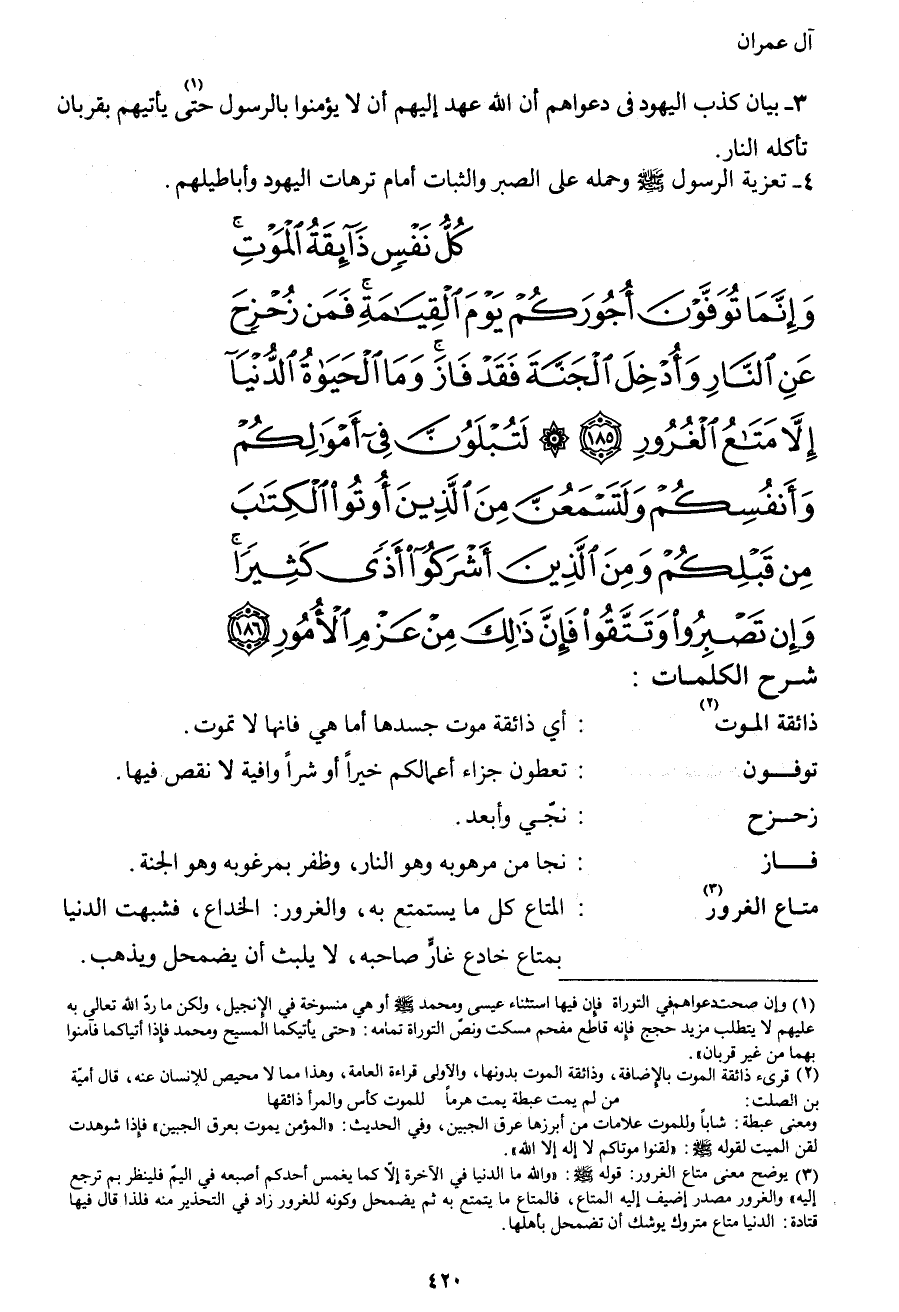 آل عمران
٣ـ بيان كذب اليهود فى دعواهم أن الله عهد إليهم أن لا يؤمنوا بالرسول حتى(١) يأتيهم بقربان
تأكله النار.
٤ـ تعزية الرسول ﷺ وحمله على الصبر والثبات أمام ترهات اليهود وأباطيلهم.
كُلُّ نَفْسٍ ذَآئِقَةُ ٱلْمَوْتِۚ
وَإِنَّمَا تُوَفَّوْنَ أُجُورَكُمْ يَوْمَ ٱلْقِيَـٰمَةِۖ فَمَن زُحْزِحَ
عَنِ ٱلنَّارِ وَأُدْخِلَ ٱلْجَنَّةَ فَقَدْ فَازَۗ وَمَا ٱلْحَيَوٰةُ ٱلدُّنْيَآ
إِلَّا مَتَـٰعُ ٱلْغُرُورِ ﴿١٨٥﴾ ۞ لَتُبْلَوُنَّ فِىٓ أَمْوَٰلِكُمْ
وَأَنفُسِكُمْ وَلَتَسْمَعُنَّ مِنَ ٱلَّذِينَ أُوتُوا۟ ٱلْكِتَـٰبَ
مِن قَبْلِكُمْ وَمِنَ ٱلَّذِينَ أَشْرَكُوٓا۟ أَذًى كَثِيرًاۚ
وَإِن تَصْبِرُوا۟ وَتَتَّقُوا۟ فَإِنَّ ذَٰلِكَ مِنْ عَزْمِ ٱلْأُمُورِ ﴿١٨٦﴾
شرح الكلمات :
ذائقة الموت(٢) : أي ذائقة موت جسدها أما هي فانها لا تموت.
توفون : تعطون جزاء أعمالكم خيراً أو شراً وافية لا نقص فيها.
زحزح : نجّي وأبعد.
فاز : نجا من مرهوبه وهو النار، وظفر بمرغوبه وهو الجنة.
متاع الغرور(٣) : المتاع كل ما يستمتع به، والغرور: الخداع، فشبهت الدنيا
بمتاع خادع غارٍّ صاحبه، لا يلبث أن يضمحل ويذهب.
(١) وإن صحت دعواهم في التوراة فإن فيها استثناء عيسى ومحمد ﷺ أو هي منسوخة في الإنجيل، ولكن ما ردّ الله تعالى به
عليهم لا يتطلب مزيد حجج فإنه قاطع مفحم مسكت ونصّ التوراة تمامه: «حتى يأتيكما المسيح ومحمد فإذا أتياكما فآمنوا
بهما من غير قربان».
(٢) قرىء ذائقة الموت بالإضافة، وذائقة الموت بدونها، والأولى قراءة العامة، وهذا مما لا محيص للإنسان عنه، قال أميّة
بن الصلت: من لم يمت عبطة يمت هرماً للموت كأس والمرأ ذائقها
ومعنى عبطة: شاباً وللموت علامات من أبرزها عرق الجبين، وفي الحديث: «المؤمن يموت بعرق الجبين» فإذا شوهدت
لقن الميت لقوله ﷺ: «لقنوا موتاكم لا إله إلا الله».
(٣) يوضح معنى متاع الغرور: قوله ﷺ: «والله ما الدنيا في الآخرة إلّا كما يغمس أحدكم أصبعه في اليمّ فلينظر بم ترجع
إليه» والغرور مصدر إضيف إليه المتاع، فالمتاع ما يتمتع به ثم يضمحل وكونه للغرور زاد في التحذير منه فلذا قال فيها
قتادة: الدنيا متاع متروك يوشك أن تضمحل بأهلها.
٤٢٠